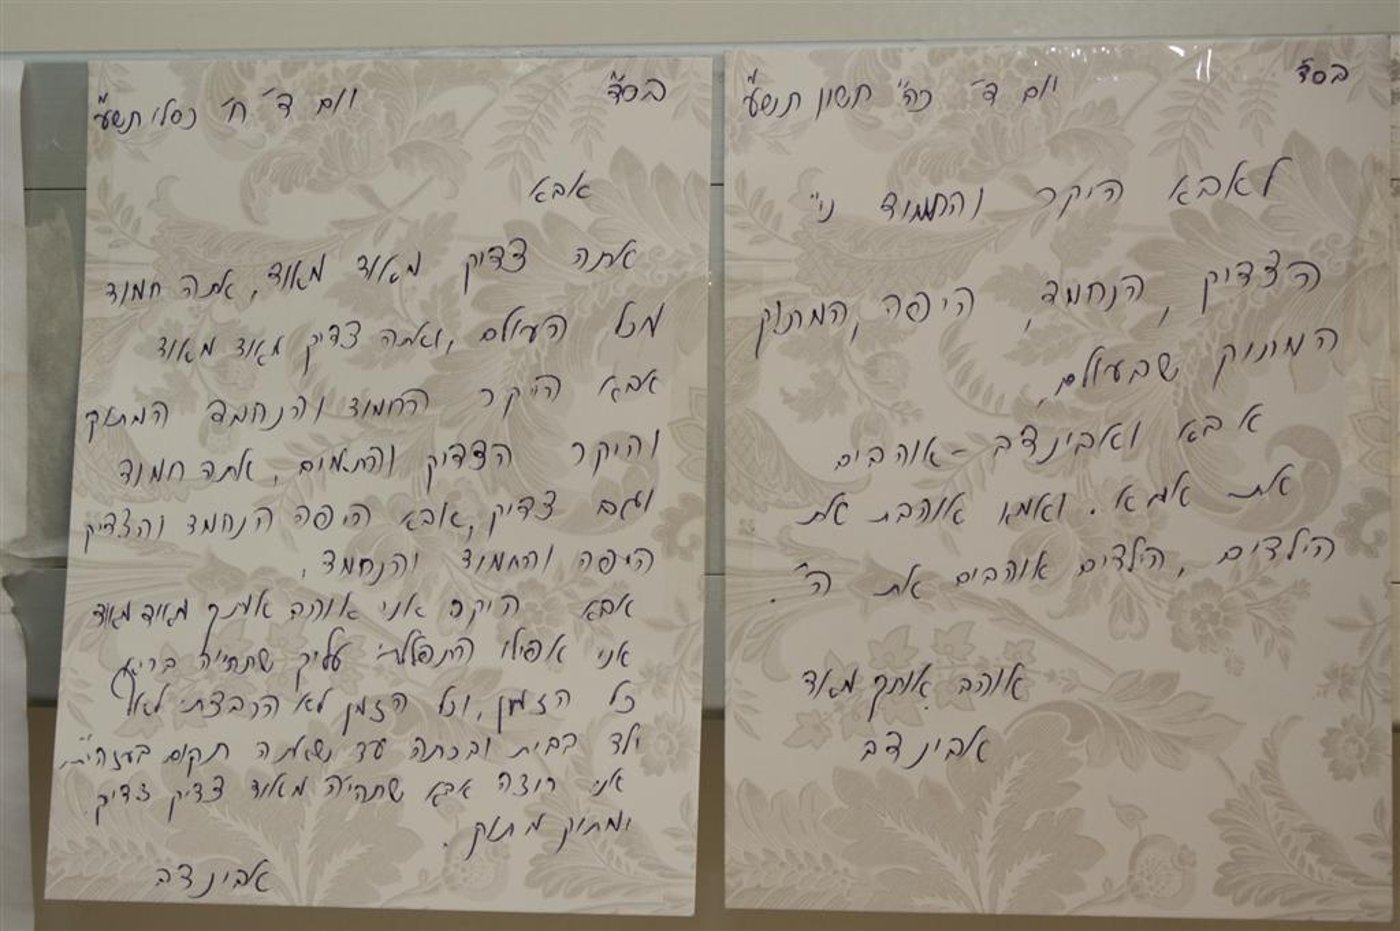 בס"ד
יום ד' כה' חשון תשע"
לאבא היקר והחמוד ני"
הצדיק, הנחמד, היפה, המתוק
המתוק שבעולם,
אבא ואבינדב - אוהבים
את אמא. ואמא אוהבת את
הילדים, הילדים אוהבים את ה'.
אוהב אותך מאוד
אבינדב
בס"ד
יום ד' ח' כסלו תשע"
אבא
אתה צדיק מאוד מאוד, אתה חמוד
מכל העולם, ואתה צדיק מאוד מאוד
אבא היקר החמוד והנחמד המתוק
והיקר הצדיק והתמים, אתה חמוד
וגם צדיק, אבא היפה הנחמד והצדיק
היפה והחמוד והנחמד.
אבא היקר אני אוהב אותך מאוד מאוד
אני אפילו התפללתי עליך שתהיה בריא
כל הזמן, וכל הזמן לא הרבצתי לאף
ילד בבית ובכתה עד שאתה תקום בעזהי"ת.
אני רוצה אבא שתהיה מאוד צדיק צדיק.
ומתוק מתוק.
אבינדב